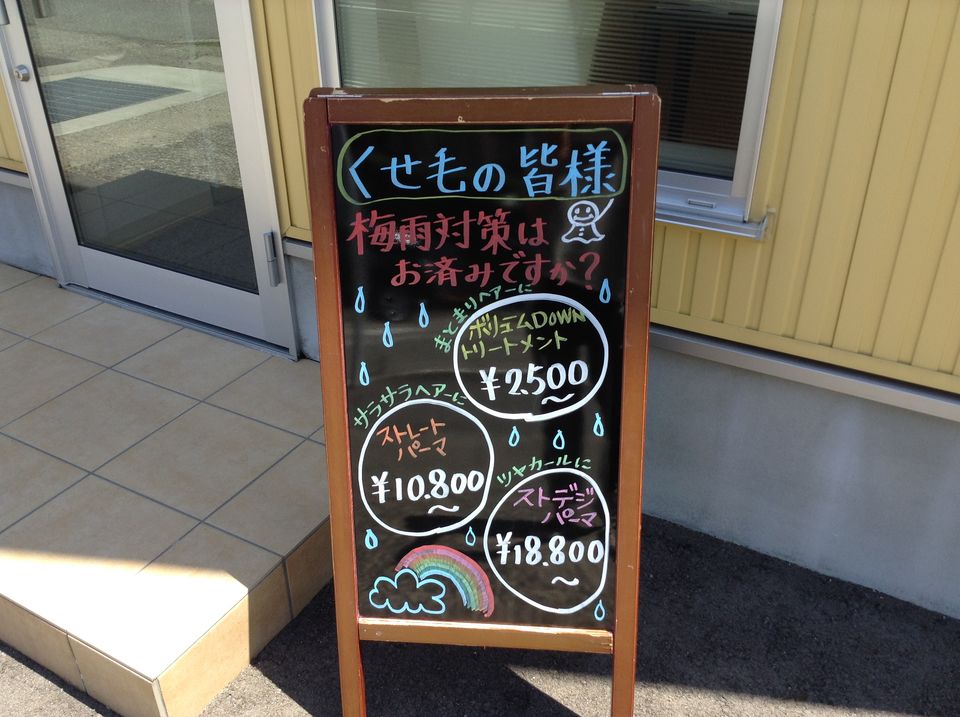 くせ毛の皆様
梅雨対策は
お済みですか？
まとまりヘアーに
ボリュームDOWN
トリートメント
¥2.500
～
サラサラヘアーに
ストレート
パーマ
¥10.800
～
ツヤカールに
ストデジ
パーマ
¥18.800
～